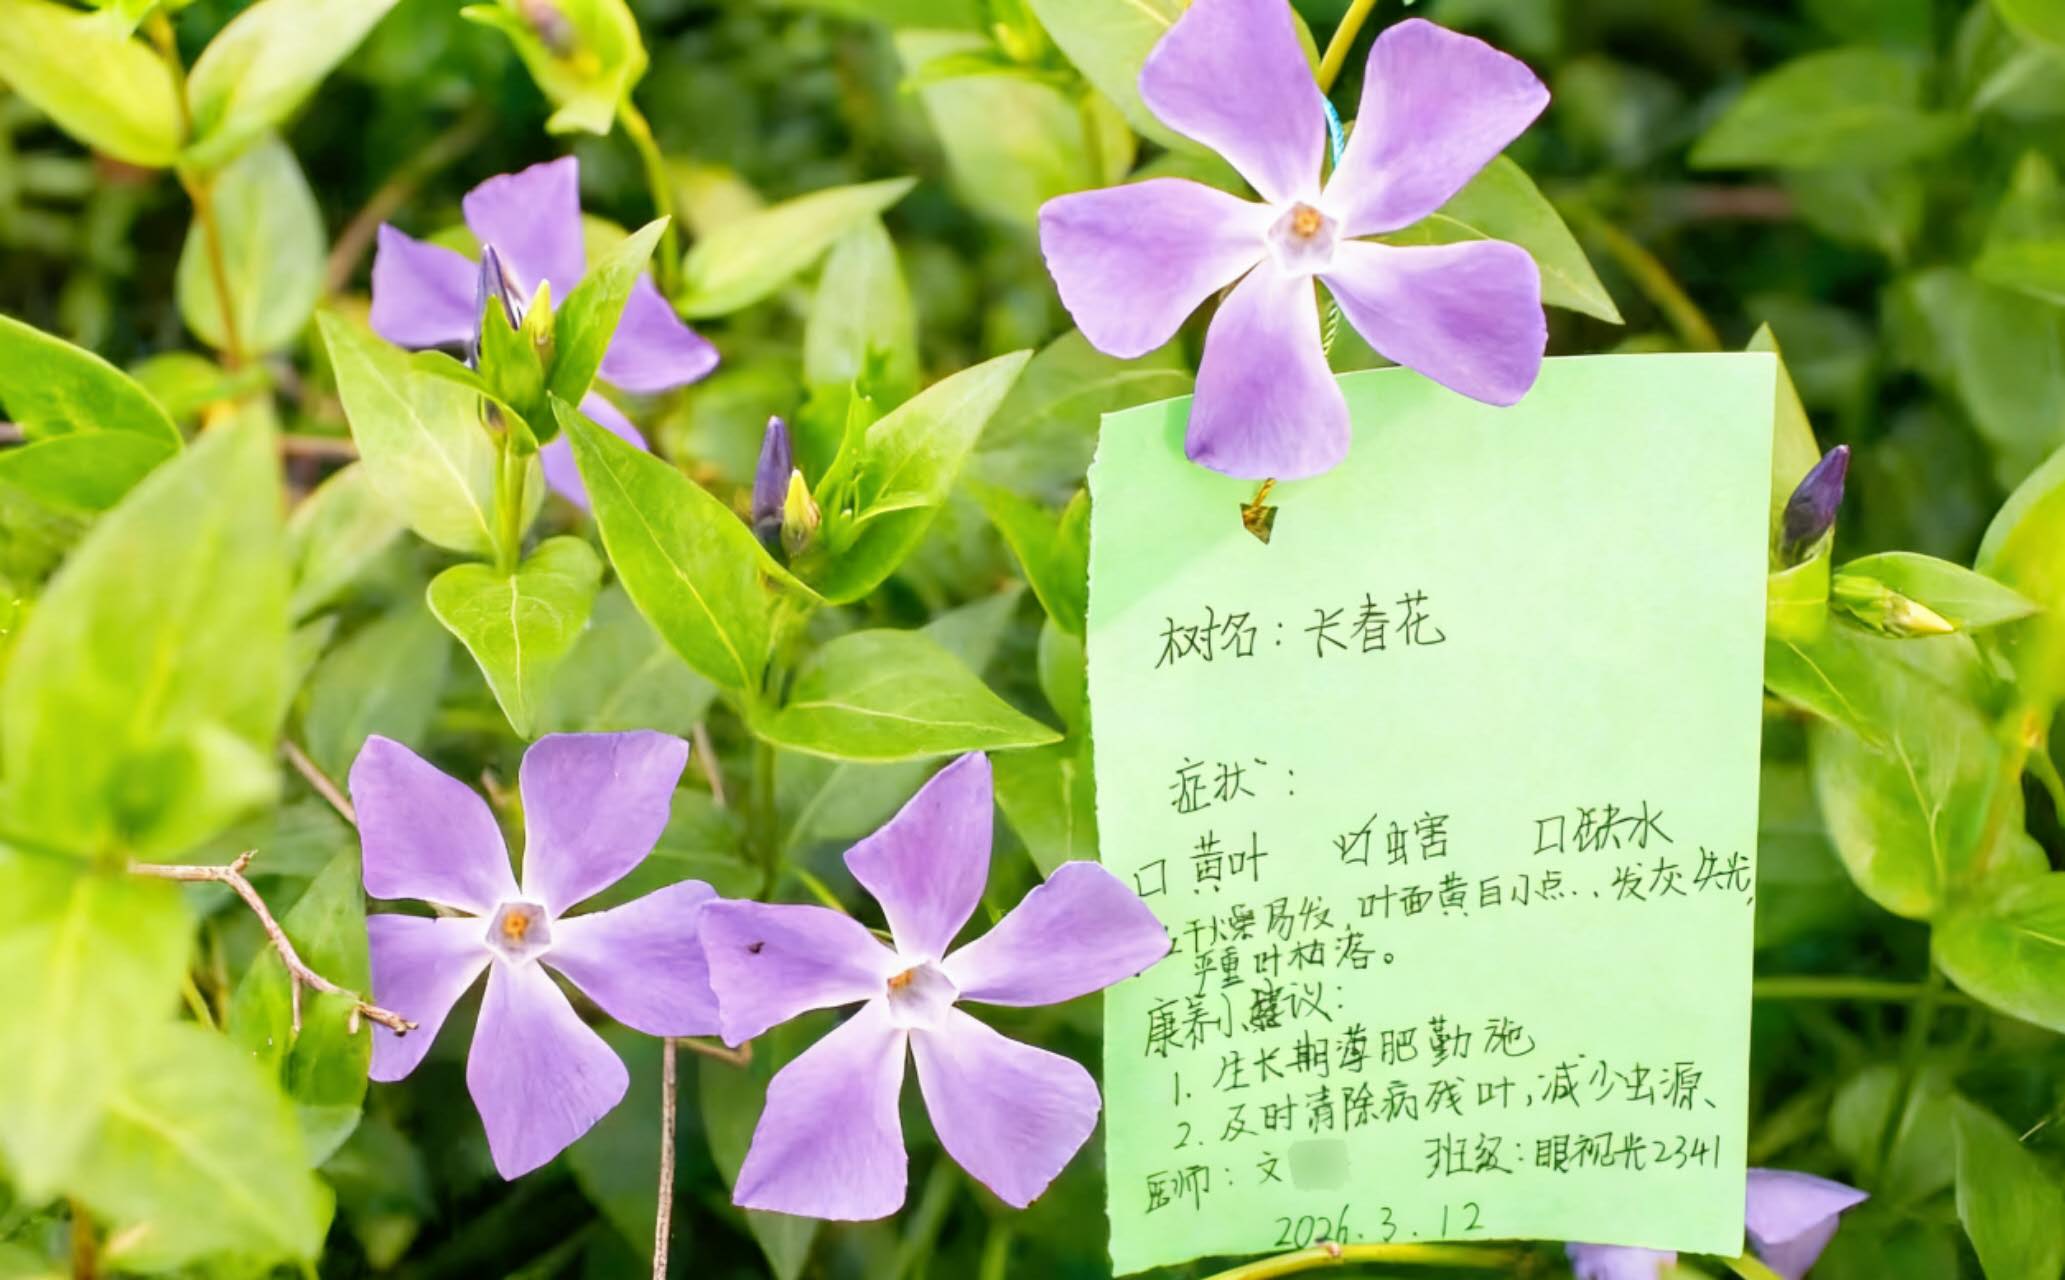 树名：长春花
症状：
口 黄叶 ☑虫害 口缺水
干燥易发，叶面黄白小点、发灰失光，
严重叶枯落。
康养小建议：
1. 生长期薄肥勤施
2. 及时清除病残叶，减少虫源、
医师：文 班级：眼视光2341
2026.3.12